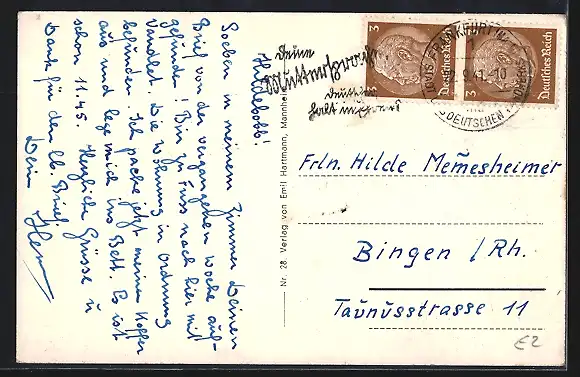 Hildebobb!
Soeben in meinem Zimmer Deinen
Brief von der vergangenen Woche auf-
gefunden! Bin zu Fuss nach hier mit
vandlet. Die Wohnung in Ordnung
befunden. Ich packe jetzt meinen Koffer
aus und lege mich ins Bett. Es ist
schon 11.45. Herzliche Grüsse u
Dank für den lb. Brief.
Dein
Nr. 28. Verlag von Emil Hartmann, Mannheim
Deine
Muttersprache
Deutscher
halt in Ehren
3
Deutsches Reich
3
Deutsches Reich
FRANKFURT
9.41.-10
DEUTSCHEN
Frln. Hilde Memesheimer
Bingen /Rh.
Taunusstrasse 11
E2